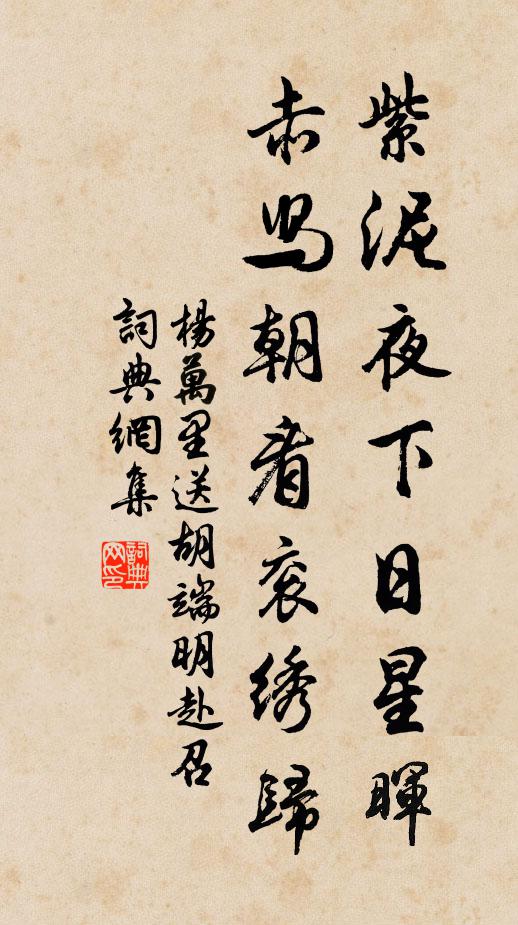 紫泥夜下日星暉
赤舄朝看衮綉歸
楊萬里送胡端明赴召
詞典網集
詞典网印